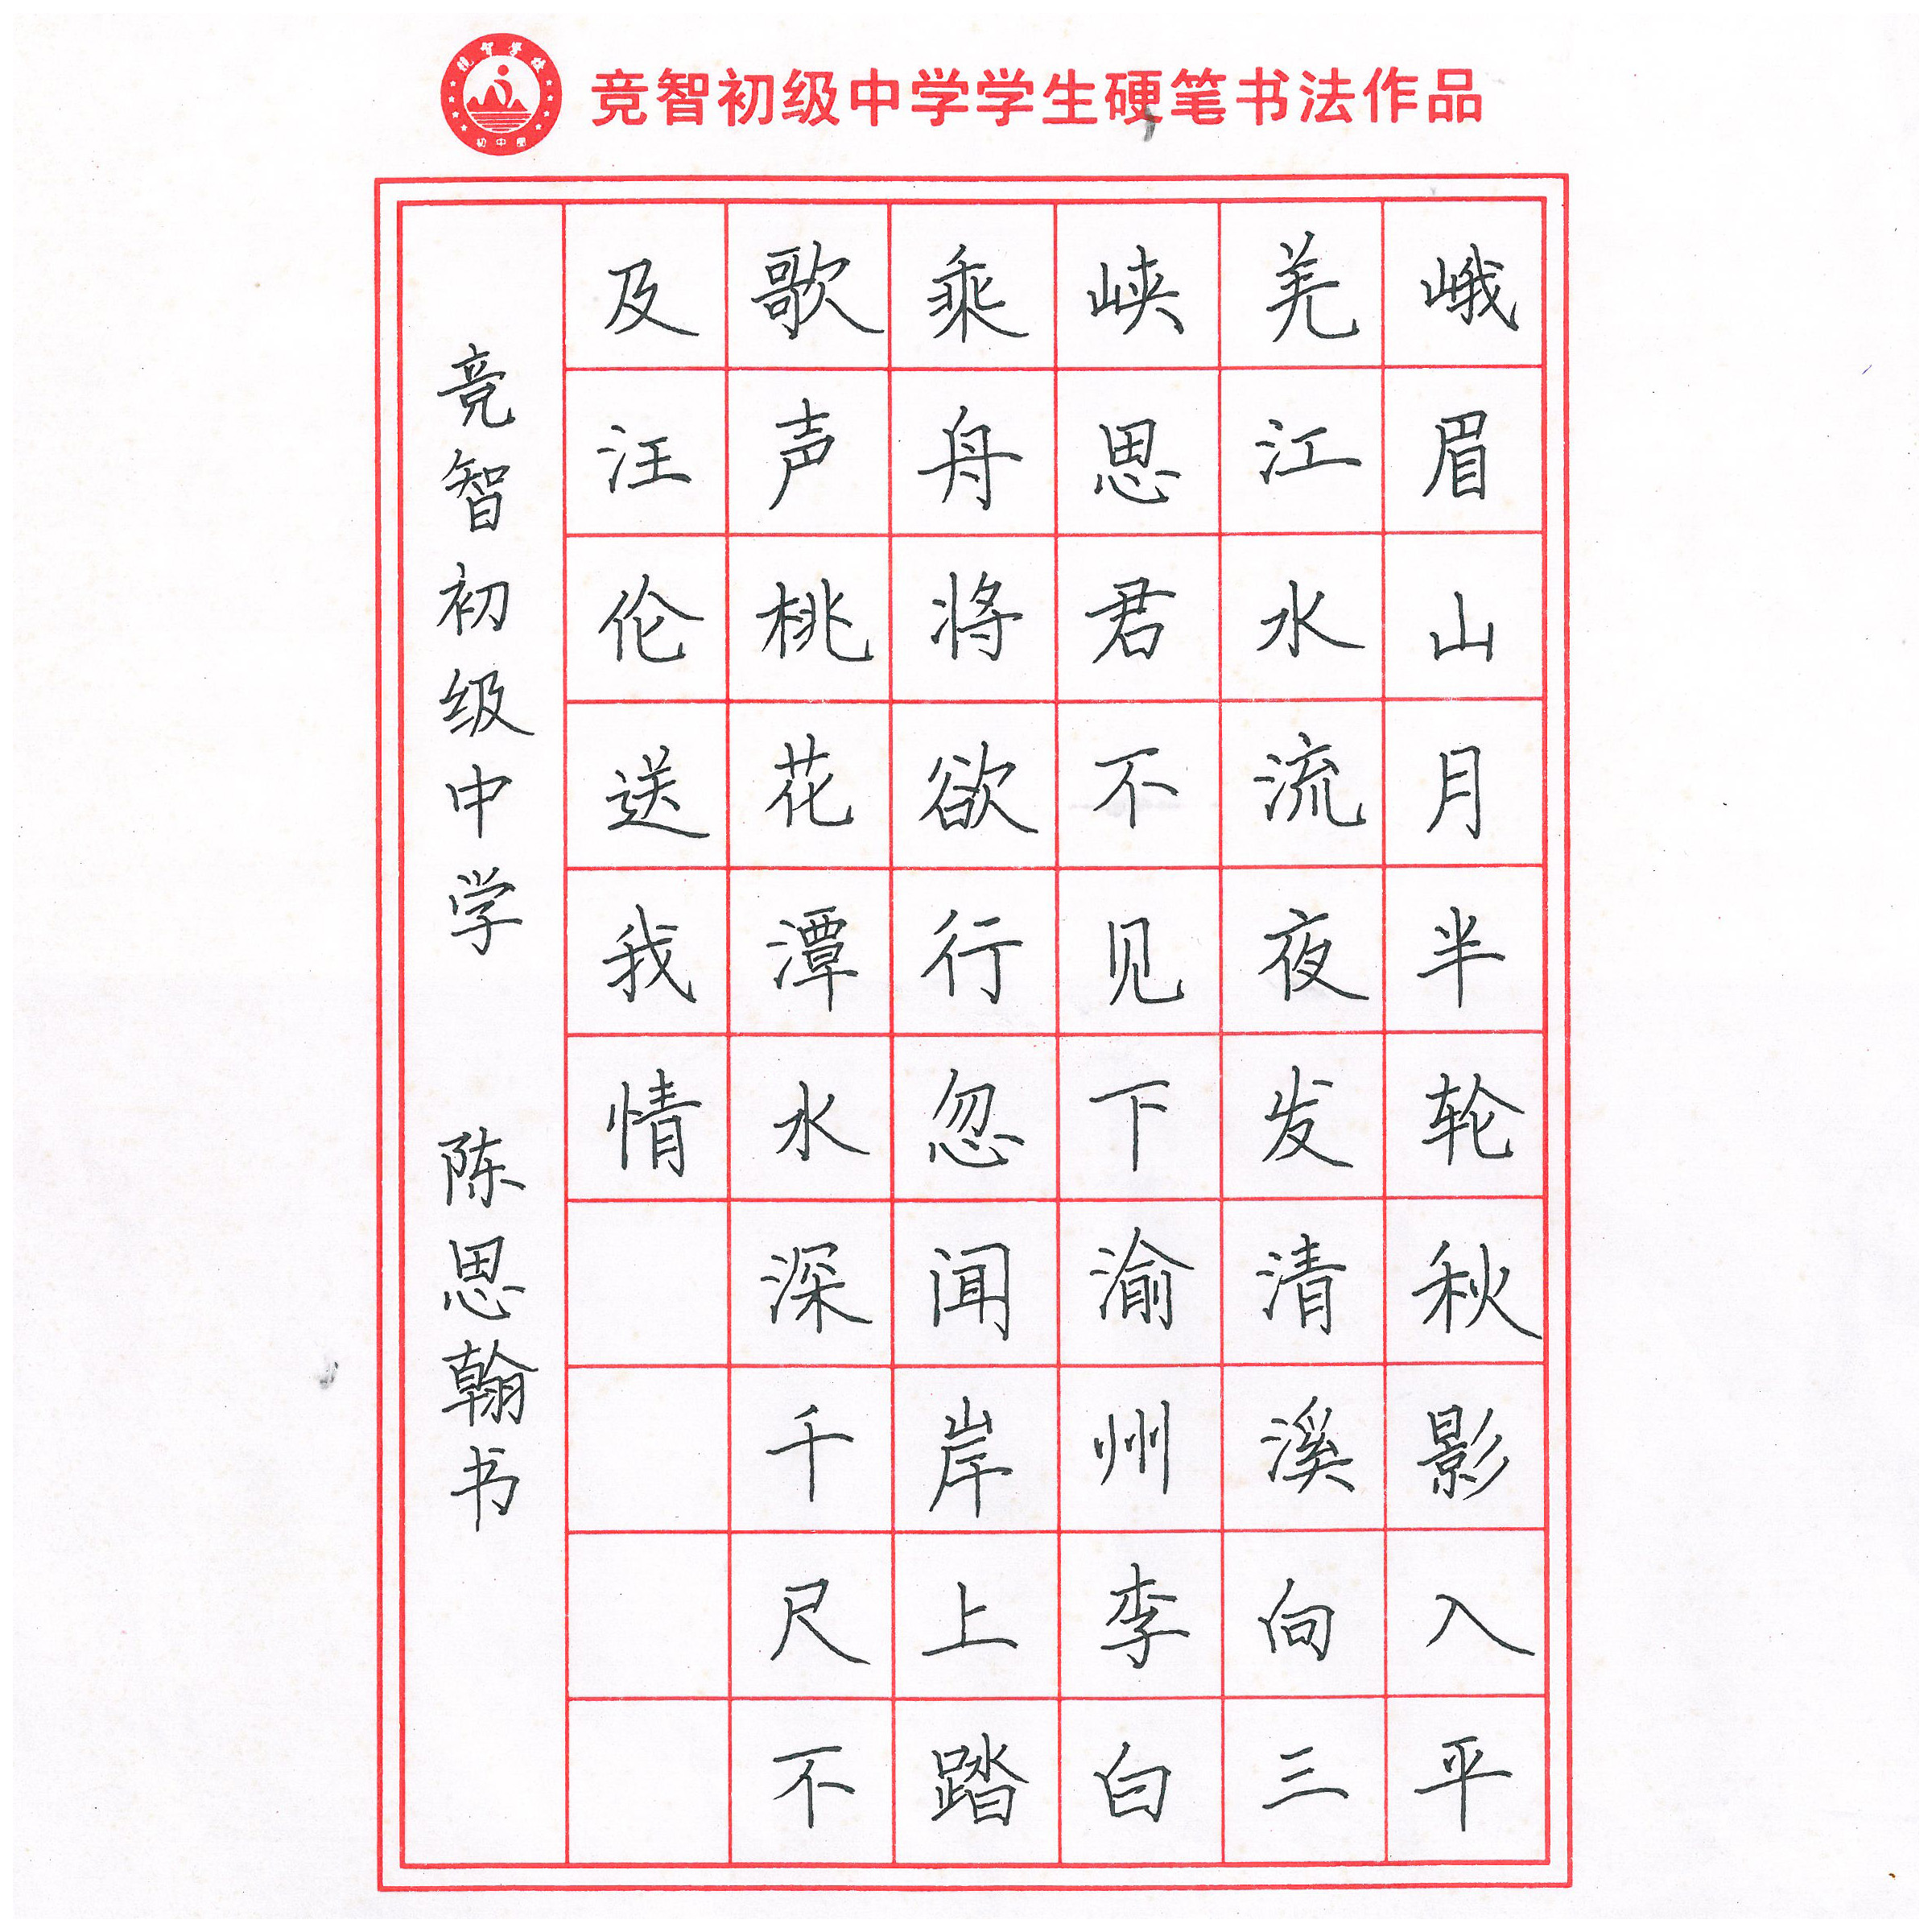 竞智初级中学学生硬笔书法作品
峨眉山月半轮秋影入平
羌江水流夜发清溪向三
峡思君不见下渝州李白
乘舟将欲行忽闻岸上踏
歌声桃花潭水深千尺不
及汪伦送我情
竞智初级中学 陈思翰书